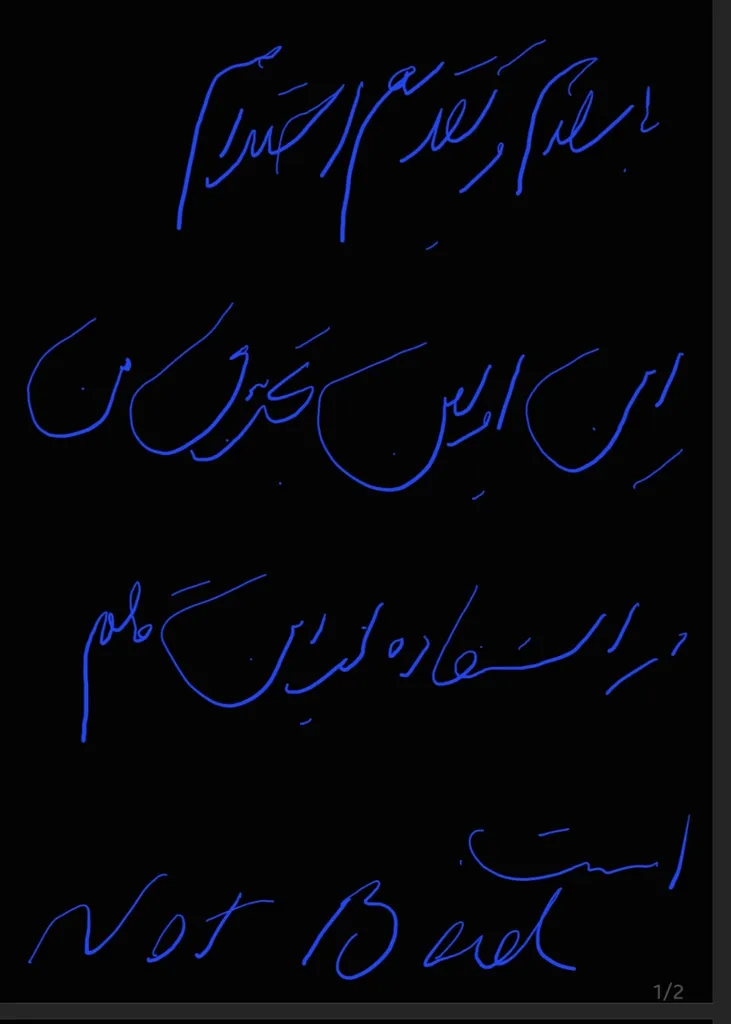 با سلام و تقدیم احترام
این اولین تجربه‌ی من
در استفاده از این قلم
است
Not Bad
1/2